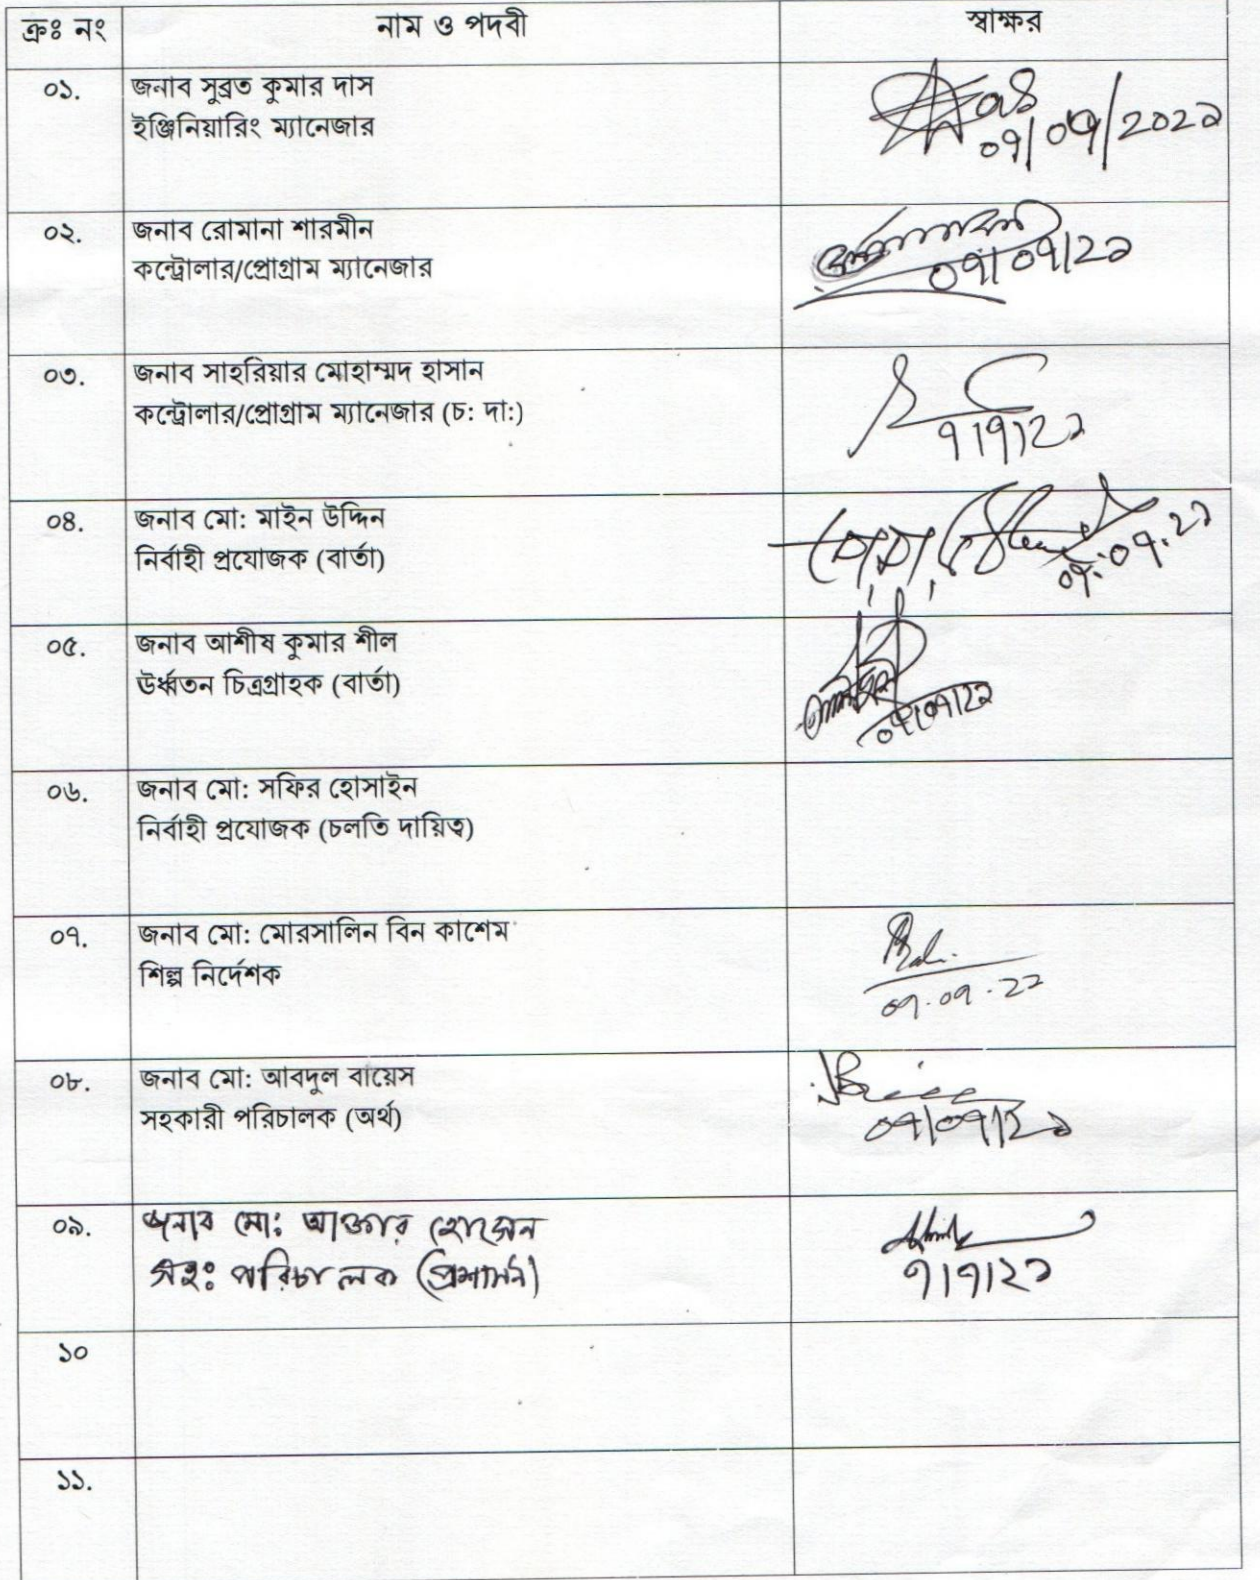 ক্রঃ নং নাম ও পদবী স্বাক্ষর
০১. জনাব সুব্রত কুমার দাস
ইঞ্জিনিয়ারিং ম্যানেজার
০৭/০৭/২০২১
০২. জনাব রোমানা শারমীন
কন্ট্রোলার/প্রোগ্রাম ম্যানেজার
০৭/০৭/২১
০৩. জনাব সাহরিয়ার মোহাম্মদ হাসান
কন্ট্রোলার/প্রোগ্রাম ম্যানেজার (চ: দা:)
৭/৭/২১
০৪. জনাব মো: মাইন উদ্দিন
নির্বাহী প্রযোজক (বার্তা)
০৭.০৭.২১
০৫. জনাব আশীষ কুমার শীল
উর্ধ্বতন চিত্রগ্রাহক (বার্তা)
০৭/০৭/২১
০৬. জনাব মো: সফির হোসাইন
নির্বাহী প্রযোজক (চলতি দায়িত্ব)
০৭. জনাব মো: মোরসালিন বিন কাশেম
শিল্প নির্দেশক
০৭.০৭.২১
০৮. জনাব মো: আবদুল বায়েস
সহকারী পরিচালক (অর্থ)
০৭/০৭/২১
০৯. জনাব মো: আক্তার হোসেন
সহঃ পরিচালক (প্রশাসন)
৭/৭/২১
১০
১১.